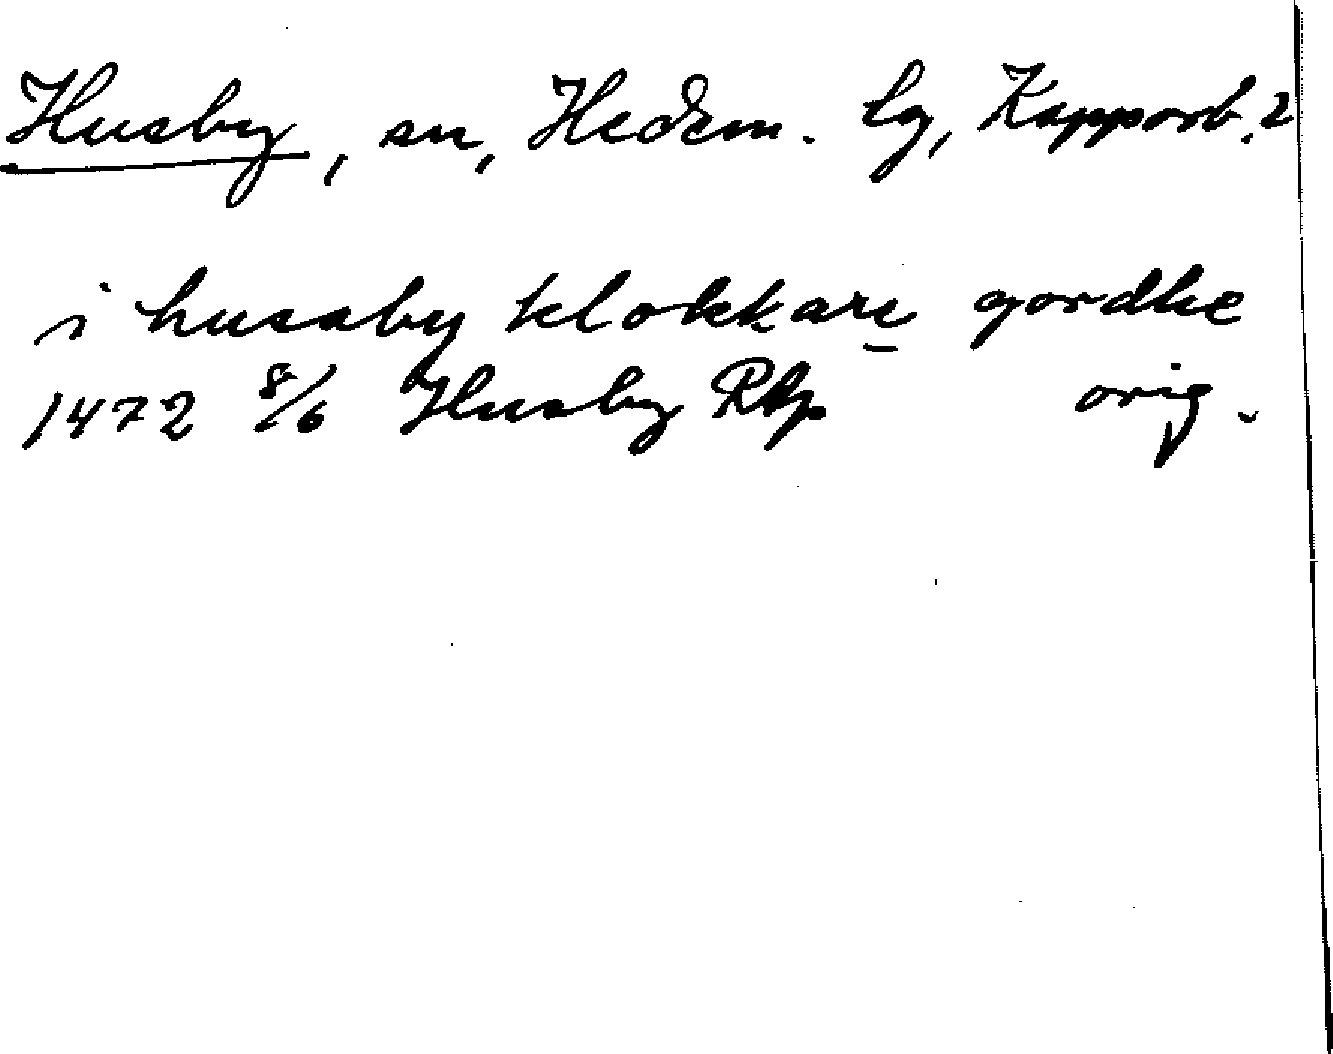 Husby, sn, Hedem. tg, Kopparb. 2
i husaby klokkare gordhe
1472 8/6 Husby Rkp orig.